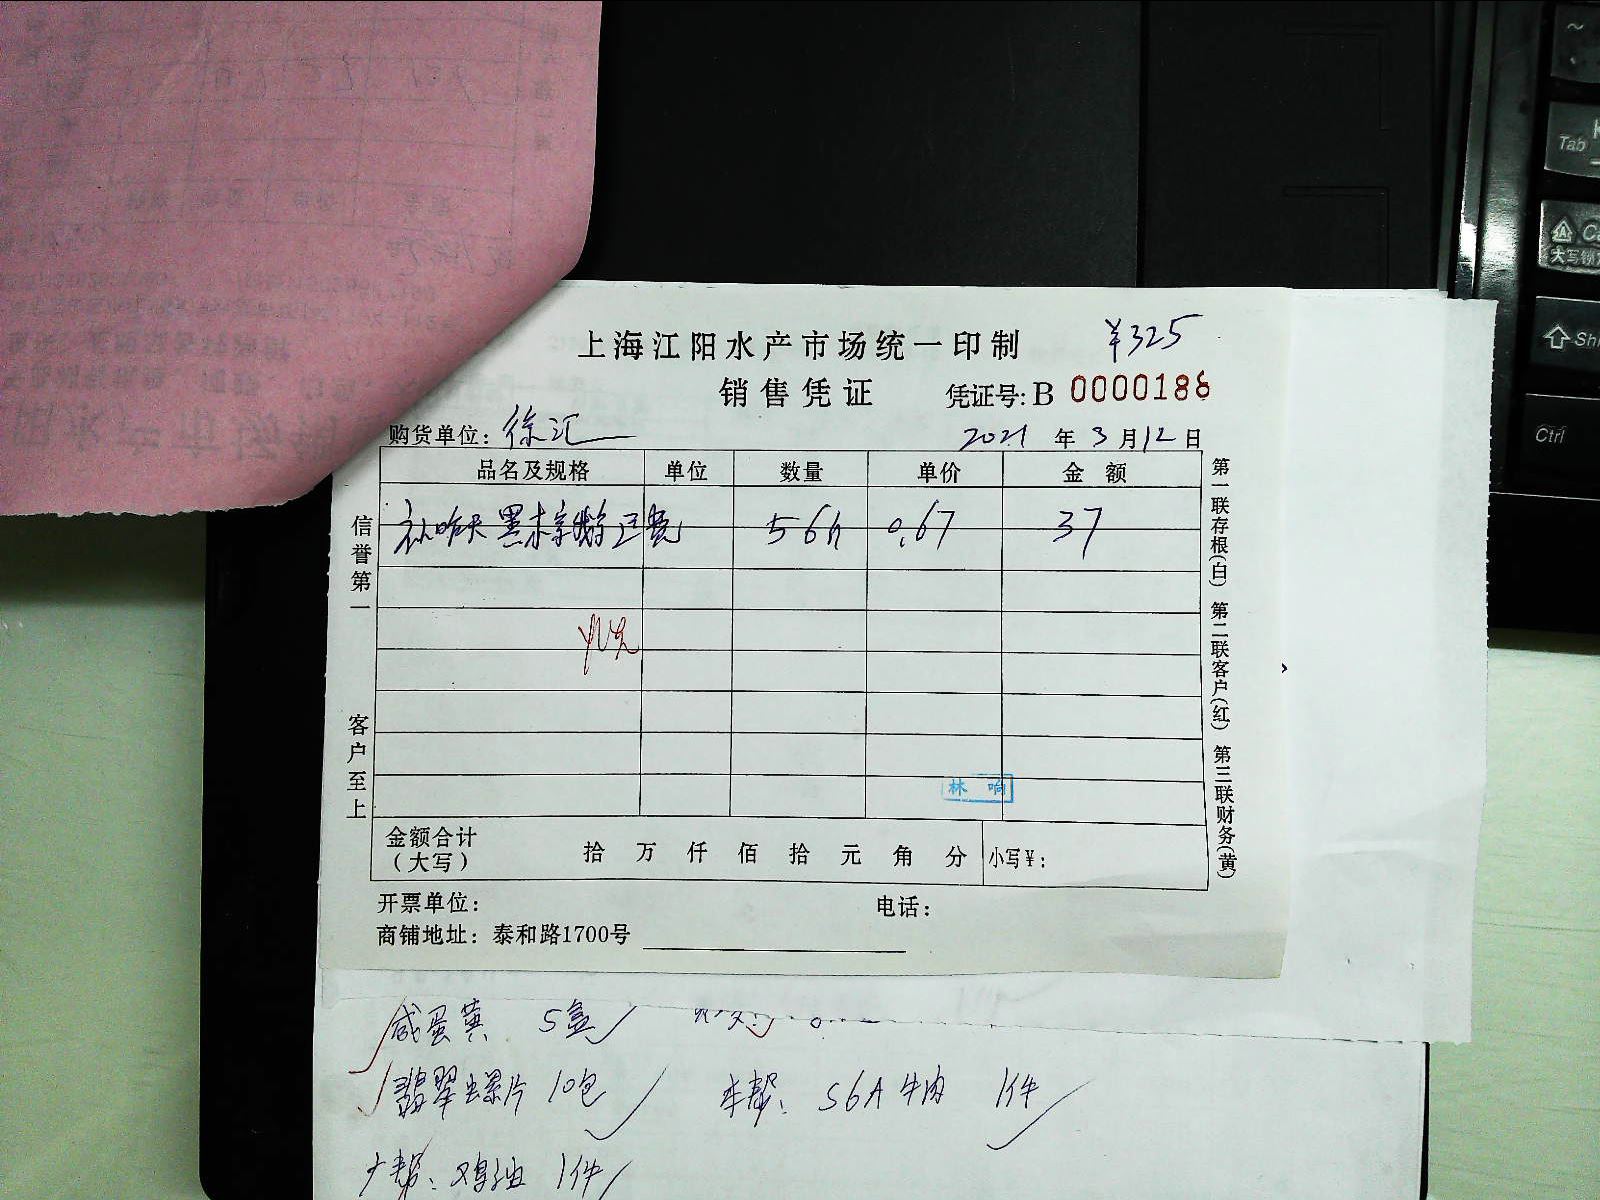 上海江阳水产市场统一印制 ¥325
销售凭证 凭证号: B 0000188
购货单位: 徐汇 2021 年 3 月 12 日
品名及规格 单位 数量 单价 金额
补昨天黑木 56 0.67 37
林 响
金额合计(大写) 拾 万 仟 佰 拾 元 角 分 小写¥:
开票单位: 电话:
商铺地址: 泰和路1700号
信誉第一 客户至上
第一联存根(白) 第二联客户(红) 第三联财务(黄)
咸蛋黄 5盒
翡翠螺片 10包 本帮: S6A牛肉 1件
大帮: 鸡油 1件
Tab
大写锁定
Ctrl